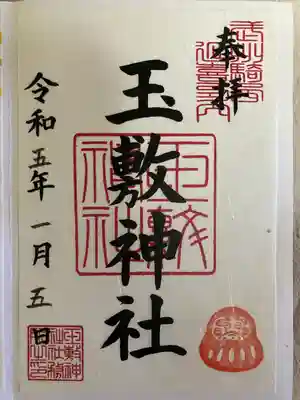 奉拝
玉敷神社
令和五年一月五日
玉敷神社